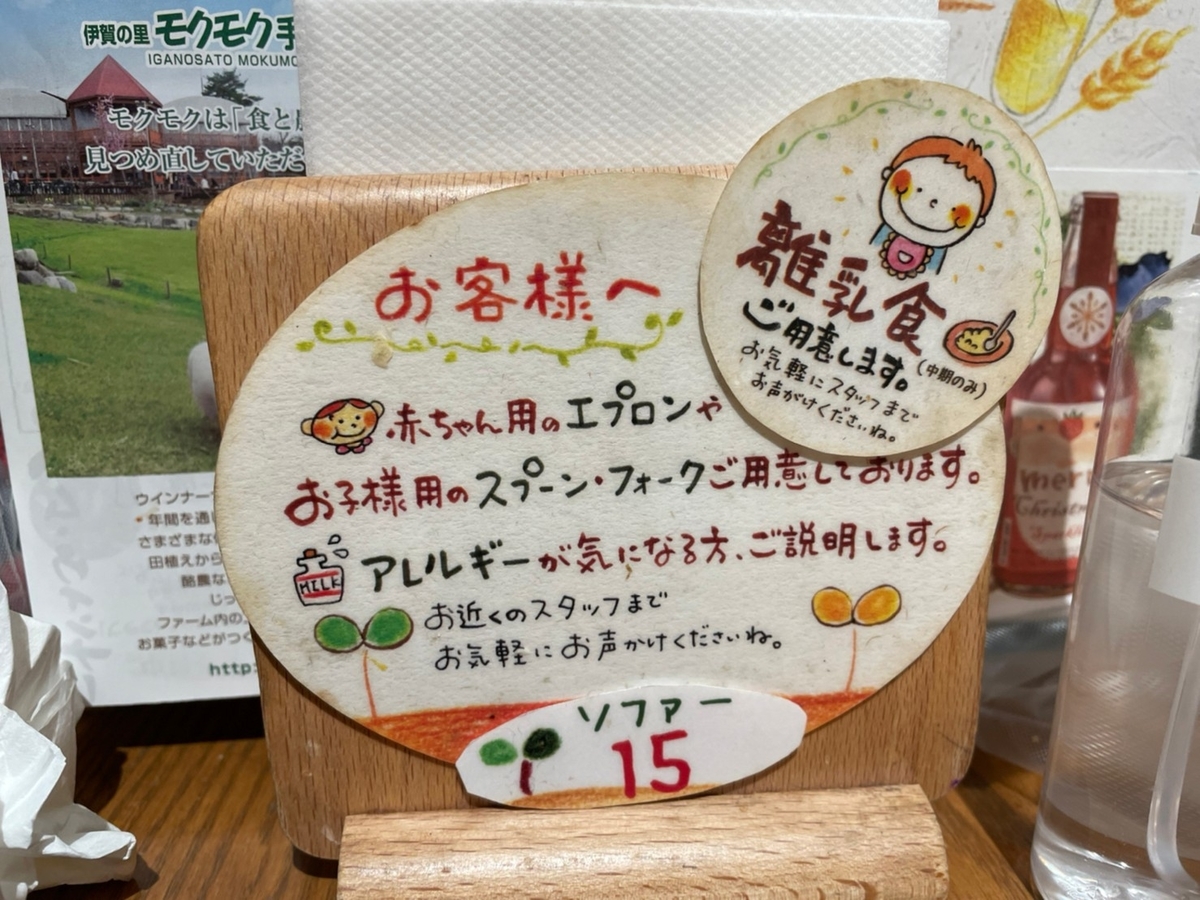 伊賀の里 モクモク手
IGANOSATO MOKUMO
モクモクは「食と
見つめ直していただ
離乳食
ご用意します。
(中期のみ)
お気軽にスタッフまで
お声がけくださいね。
お客様へ
赤ちゃん用のエプロンや
お子様用のスプーン・フォークご用意しております。
MILK
アレルギーが気になる方、ご説明します。
お近くのスタッフまで
お気軽にお声かけくださいね。
ソファー
15
ウインナー
・年間を通
さまざまな
田植えから
酪農な
じっ
ファーム内の
お菓子などがつく
http:
merry
Christmas